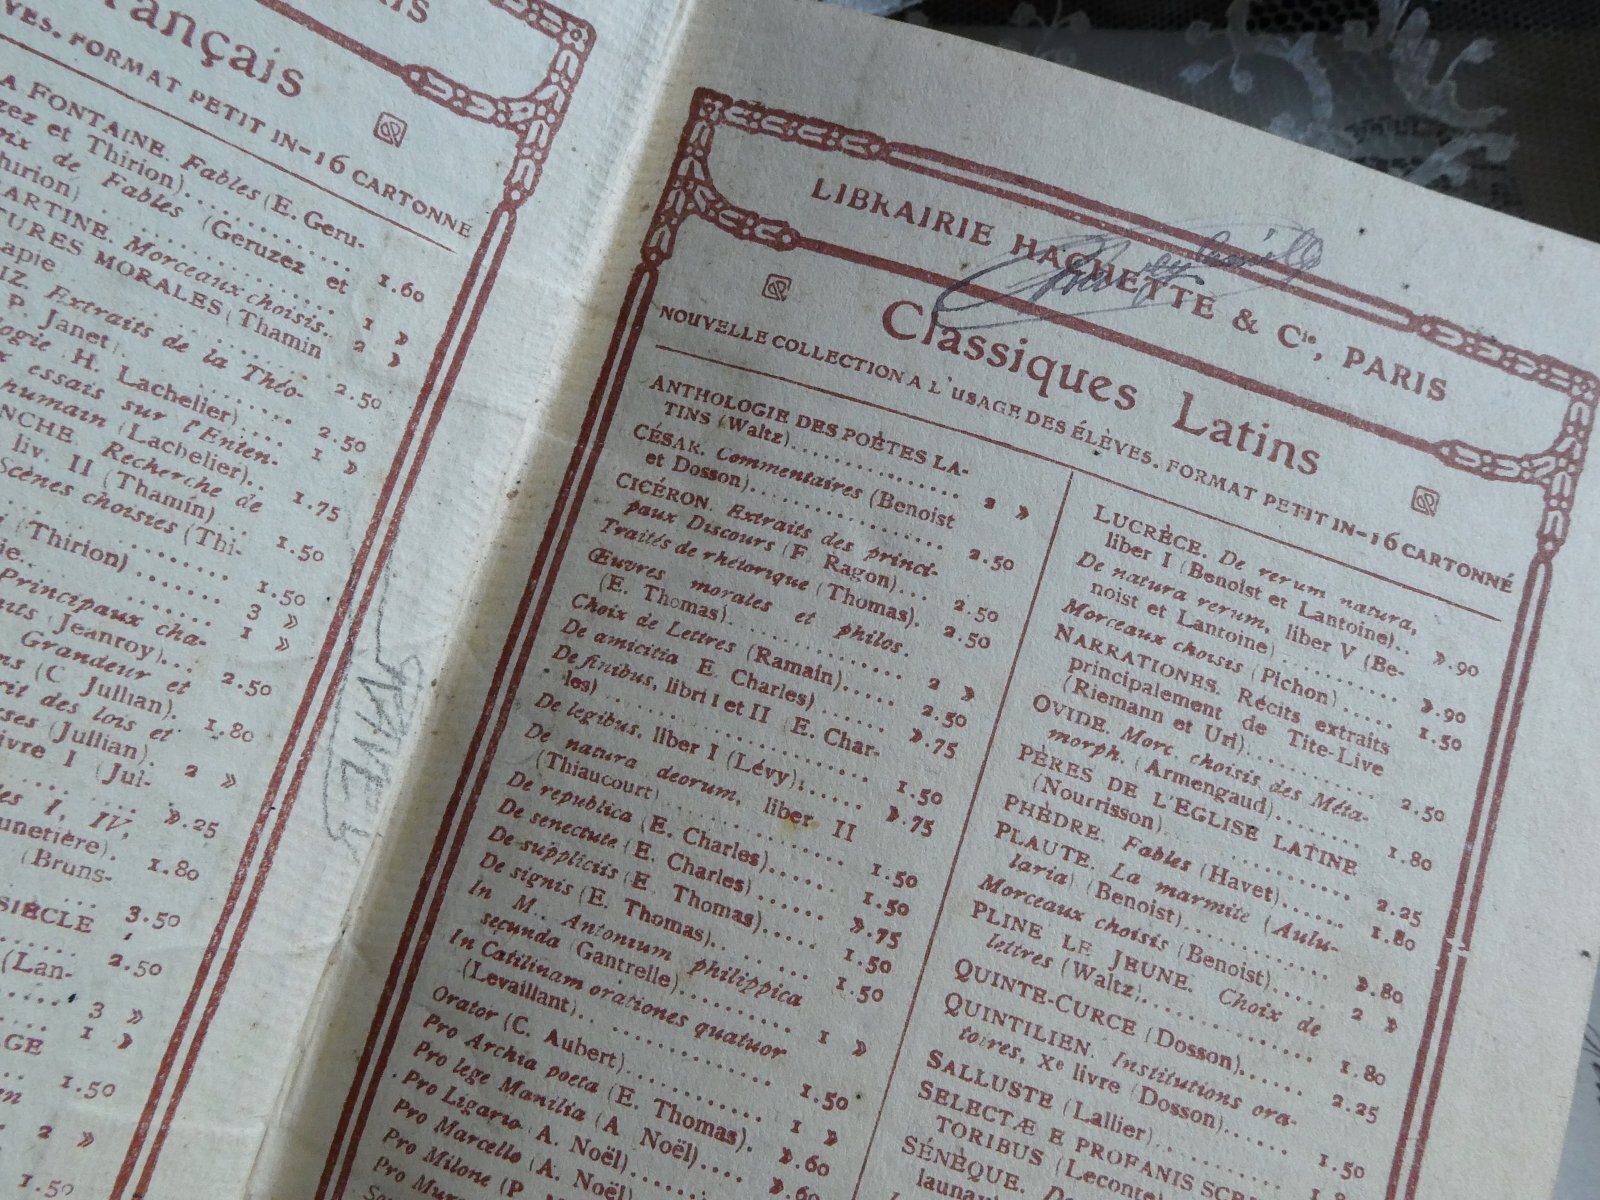 IS
rançais
VES. FORMAT PETIT IN-16 CARTONNÉ
A FONTAINE. Fables (E. Geru-
zez et Thirion). 1.60
oix de Fables (Geruzez et
hirion) 1 »
ARTINE. Morceaux choisis. 2 »
TURES MORALES (Thamin
apie) 2.50
IZ Extraits de la Théo-
P. Janet) 2.50
ologie (H. Lachelier) 1 »
x essais sur l'Enten-
humain (Lachelier). 1.75
NCHE. Recherche de
liv. II (Thamin) 1.50
Scènes choisies (Thi-
1.50
i (Thirion) 3 »
ie. 1 »
Principaux cha-
nts (Jeanroy) 2.50
Grandeur et
ns (C Jullian). 1.80
rit des lois et
ses (Jullian). 2 »
ivre I (Jul-
».25
les I, IV,
unetière). 1.80
(Bruns-
3.50
SIÈCLE
2.50
(Lan-
3 »
1 »
AGE
1.50
en
2 »
1.50
LIBRAIRIE HACHETTE & Cie, PARIS
Classiques Latins
NOUVELLE COLLECTION A L'USAGE DES ÉLÈVES. FORMAT PETIT IN-16 CARTONNÉ
ANTHOLOGIE DES POÈTES LA-
TINS (Waltz) 2 »
CÉSAR. Commentaires (Benoist
et Dosson) 2.50
CICÉRON. Extraits des princi-
paux Discours (F. Ragon) 2.50
Traités de rhétorique (Thomas). 2.50
Œuvres morales et philos.
(E. Thomas) 2 »
Choix de Lettres (Ramain) 2.50
De amicitia E. Charles) ».75
De finibus, libri I et II (E. Char-
les) 1.50
De legibus, liber I (Lévy) ».75
De natura deorum, liber II
(Thiaucourt) 1.50
De republica (E. Charles) 1.50
De senectute (E. Charles) ».75
De suppliciis (E. Thomas) 1.50
De signis (E. Thomas) 1.50
In M. Antonium philippica
secunda (Gantrelle) 1 »
In Catilinam orationes quatuor
(Levaillant) 1.50
Orator (C. Aubert) 1 »
Pro Archia poeta (E. Thomas). ».60
Pro lege Manilia (A Noël) ».60
Pro Ligario. A. Noël)
Pro Marcello (A. Noël)
Pro Milone (P.
Pro Mur
LUCRÈCE. De rerum natura,
liber I (Benoist et Lantoine) ».90
De natura rerum, liber V (Be-
noist et Lantoine) ».90
Morceaux choisis (Pichon) 1.50
NARRATIONES. Récits extraits
principalement de Tite-Live
(Riemann et Uri) 2.50
OVIDE. Morc. choisis des Méta-
morph. (Armengaud) 1.80
PÈRES DE L'EGLISE LATINE
(Nourrisson) 2.25
PHÈDRE. Fables (Havet) 1.80
PLAUTE. La marmite (Aulu-
laria) (Benoist) ».80
Morceaux choisis (Benoist) 2 »
PLINE LE JEUNE. Choix de
lettres (Waltz) 1.80
QUINTE-CURCE (Dosson) 2.25
QUINTILIEN. Institutions ora-
toires, Xe livre (Dosson) 1.50
SALLUSTE (Lallier)
SELECTÆ E PROFANIS SCR
TORIBUS (Leconte)
SÉNÈQUE. De
launay